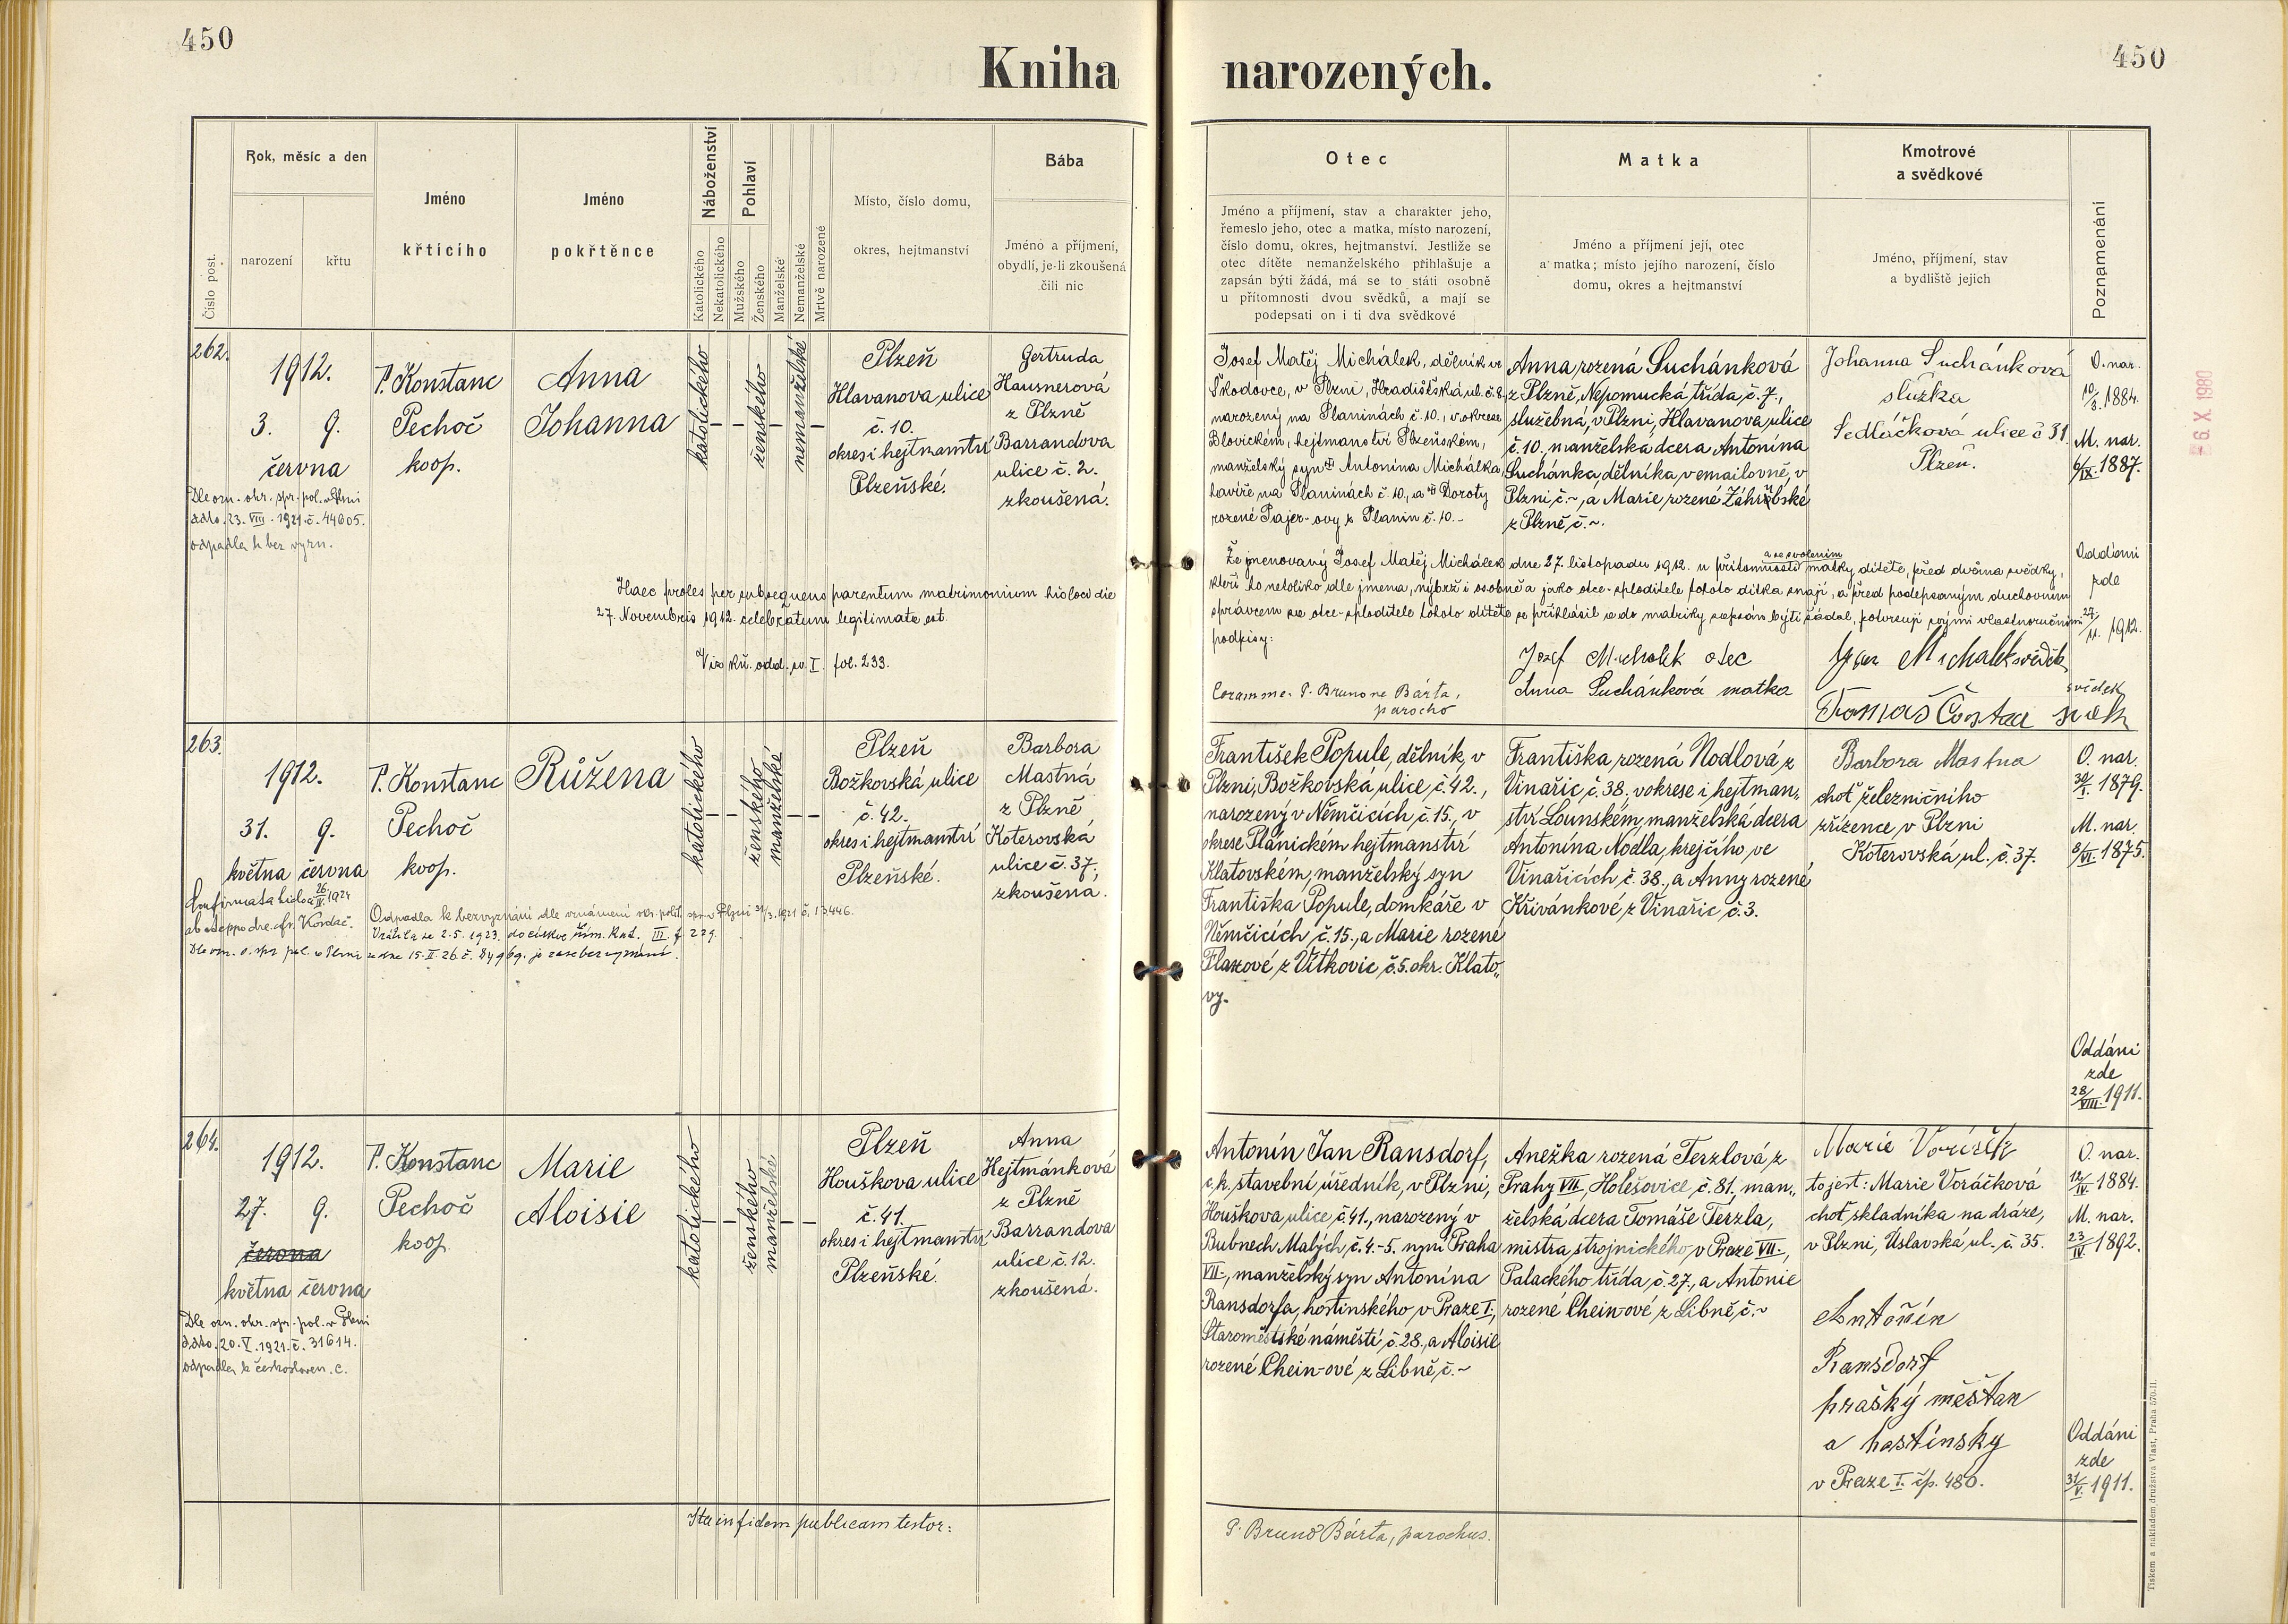 450
Kniha narozených.
450
Číslo post.
Rok, měsíc a den
narození
křtu
Jméno
křtícího
Jméno
pokřtěnce
Náboženství
Katolického
Nekatolického
Pohlaví
Mužského
Ženského
Manželské
Nemanželské
Mrtvě narozené
Místo, číslo domu,
okres, hejtmanství
Bába
Jméno a příjmení,
obydlí, je-li zkoušená
čili nic
Otec
Jméno a příjmení, stav a charakter jeho,
řemeslo jeho, otec a matka, místo narození,
číslo domu, okres, hejtmanství. Jestliže se
otec dítěte nemanželského přihlašuje a
zapsán býti žádá, má se to státi osobně
u přítomnosti dvou svědků, a mají se
podepsati on i ti dva svědkové
Matka
Jméno a příjmení její, otec
a matka; místo jejího narození, číslo
domu, okres a hejtmanství
Kmotrové
a svědkové
Jméno, příjmení, stav
a bydliště jejich
Poznamenání
262.
1912.
3. 9.
června
Dle ozn. okr. spr. pol. v Plzni
ddto. 23. VIII. 1921. č. 44605.
odpadla k bez vyzn.
P. Konstanc
Pechoč
koop.
Anna
Johanna
katolického
ženského
nemanželské
Plzeň
Hlavanova ulice
č. 10.
okres i hejtmanství
Plzeňské.
Gertruda
Hausnerová
z Plzně
Barrandova
ulice č. 2.
zkoušená.
Haec proles per subsequens parentum matrimonium hic loci die
27. Novembris 1912. celebratum legitimata est.
Viz kn. odd. sv. I. fol. 233.
Josef Matěj Michálek, dělník ve
Škodovce, v Plzni, Hradišťská ul. č. 8,
narozený na Planinách č. 10., v okrese
Blovickém, hejtmanství Plzeňském,
manželský syn Antonína Michálka,
havíře na Planinách č. 10., a Doroty
rozené Pajer-ovy z Planin č. 10.-
Anna rozená Suchánková
z Plzně, Nepomucká třída, č. 7.,
služebná, v Plzni, Hlavanova ulice
č. 10. manželská dcera Antonína
Suchánka, dělníka, v emailovně, v
Plzni č. ~, a Marie rozené
z Plzně, č. ~.
Johanna Suchánková
služka
Sedláčková ulice č 31.
Plzeň.
O. nar.
10/3. 1884.
M. nar.
6/IX. 1887.
a se svolením
Že jmenovaný Josef Matěj Michálek dne 27. listopadu 1912. u přítomnosti matky dítěte, před dvěma svědky,
kteří ho netoliko dle jmena, nýbrž i osobně a jako otce-sploditele tohoto dítka znají, a před podepsaným duchovním
správcem za otce-sploditele tohoto dítěte se přihlásil a do matriky zapsán býti žádal, potvrzují svými vlastnoručními
podpisy:
Oddáni
zde
27/11. 1912.
Josef Michalek otec
Anna Suchánková matka
Michalek svědek
Coram me: P. Brunone Bárta,
parocho
Tomáš
svědek
263.
1912.
31. 9.
května června
P. Konstanc
Pechoč
koop.
Růžena
katolického
ženského
manželské
Plzeň
Božkovská ulice
č. 42.
okres i hejtmanství
Plzeňské.
Barbora
Mastná
z Plzně
Koterovská
ulice č. 37.,
zkoušená.
Odpadla k bezvyznání dle oznámení okr. polit. spr. v Plzni 31/3. 1921 č. 13446.
Vrátila se 2.5. 1923. do církve řím. kat. III. f 229.
Dle ozn. o. spr. pol. v Plzni ze dne 15. II. 26. č. je zase bez vyznání.
František Popule, dělník, v
Plzni, Božkovská ulice č. 42.,
narozený v Němčicích, č. 15., v
okrese Plánickém hejtmanství
Klatovském, manželský syn
Františka Popule, domkáře v
Němčicích č. 15., a Marie rozené
Flaxové, z Vítkovic č. 5. okr. Klato„
vy.
Františka rozená Nodlová, z
Vinařic, č. 38., v okrese i hejtman„
ství Lounském, manželská dcera
Antonína Nodla, krejčího, ve
Vinařicích č. 38., a Anny rozené
Křivánkové, z Vinařic, č. 3.
Barbora Mastna
choť železničního
zřízence v Plzni
Koterovská, ul. č. 37.
O. nar.
30/I. 1879.
M. nar.
8/VI. 1875.
Oddáni
zde
28/VIII. 1911.
264.
1912.
27. 9.
června
května června
Dle ozn. okr. spr. pol. v Plzni
ddto. 20. V. 1921. č. 31614.
odpadla k českosloven. c.
P. Konstanc
Pechoč
koop.
Marie
Aloisie
katolického
ženského
manželské
Plzeň
Houškova ulice
č. 41.
okres i hejtmanství
Plzeňské.
Anna
Hejtmánková
z Plzně
Barrandova
ulice č. 12.
zkoušená.
Antonín Jan Ransdorf,
c. k. stavební úředník, v Plzni,
Houškova, ulice, č. 41., narozený v
Bubnech Malých, č. 4.-5. nyní Praha
VII., manželský syn Antonína
Ransdorfa, hostinského, v Praze I.,
Staroměstské náměstí, č. 28., a Aloisie
rozené Chein-ové z Libně, č. ~
Anežka rozená Terzlová, z
Prahy VII, Holešovice, č. 81., man„
želská dcera Tomáše Terzla,
mistra strojnického, v Praze VII.,
Palackého třída, č. 27., a Antonie
rozené Chein-ové, z Libně, č. ~
Marie
to jest: Marie Voráčková
choť, skladníka na dráze,
v Plzni, Úslavská, ul. č. 35.
Antonín
Ransdorf
pražský měšťan
a hostinsky
v Praze I. čp. 480.
O. nar.
12/IV. 1884.
M. nar.
23/IV. 1892.
Oddáni
zde
31/V. 1911.
Ita in fidem publicam testor:
P. Bruno Bárta, parochus.
6. X. 1980
Tiskem a nákladem družstva Vlast, Praha 570-II.